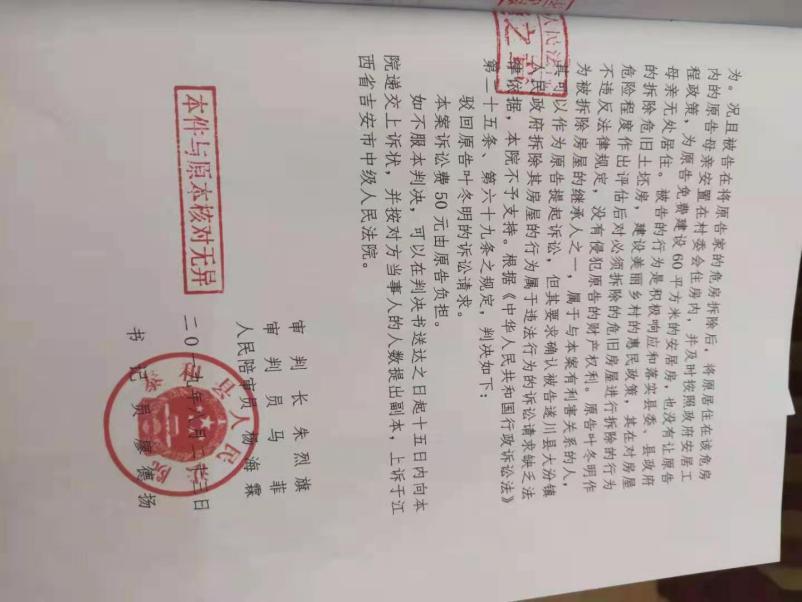 为。况且被告在将原告家的危房拆除后，将原居住在该危房
内的原告母亲安置在村委会住房内，并及时按照政府安居工
程政策，为原告免费建设60平方米的安居房，也没有让原告
母亲无处居住。被告的行为是积极响应和落实县委、县政府
的拆除危旧土坯房，建设美丽乡村的惠民政策，其在对房屋
危险程度作出评估后对必须拆除的危旧房屋进行拆除的行为
不违反法律规定，没有侵犯原告的财产权利。原告叶冬明作
为被拆除房屋的继承人之一，属于与本案有利害关系的人，
其可以作为原告提起诉讼，但其要求确认被告遂川县大汾镇
人民政府拆除其房屋的行为属于违法行为的诉讼请求缺乏法
律依据，本院不予支持。根据《中华人民共和国行政诉讼法》
第二十五条、第六十九条之规定，判决如下：
驳回原告叶冬明的诉讼请求。
本案诉讼费50元由原告负担。
如不服本判决，可以在判决书送达之日起十五日内向本
院递交上诉状，并按对方当事人的人数提出副本，上诉于江
西省吉安市中级人民法院。
审判长朱烈旗
审判员马菲
人民陪审员杨海霖
二0一九年八月二十三日
书记员廖德扬
本件与原本核对无异
人民法